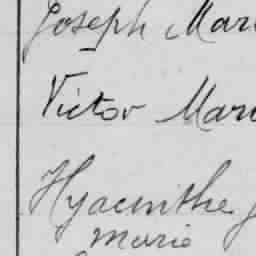 Joseph Mar
Victor Mar
Hyacinthe
Marie